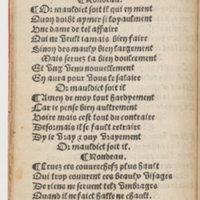 Rondeau.
Or mauldict soit il qui ey ment
Quoy doibt aymer si loyaulment
Une dame de tel affaire
Qui ne veult iamais bien faire
Sinon des maulx bien largement
Mais servez la bien doulcement
Et ung venu nouvellement
Ey aura pour vous le salaire
Or mauldict soit il
Aymey de moy tout hardyement
Car ie pense bien aultrement
Voire mais cest tout du contraire
Desormais il se fault retraire
Dy ie vray ? ouy vrayement
Or mauldict soit il.
Rondeau.
Levez ces couvrechefz plus hault
Qui trop couvrent ces beaulx visages
De riens ne servent telz umbrages
Quand il ne faict hasle ne chault.